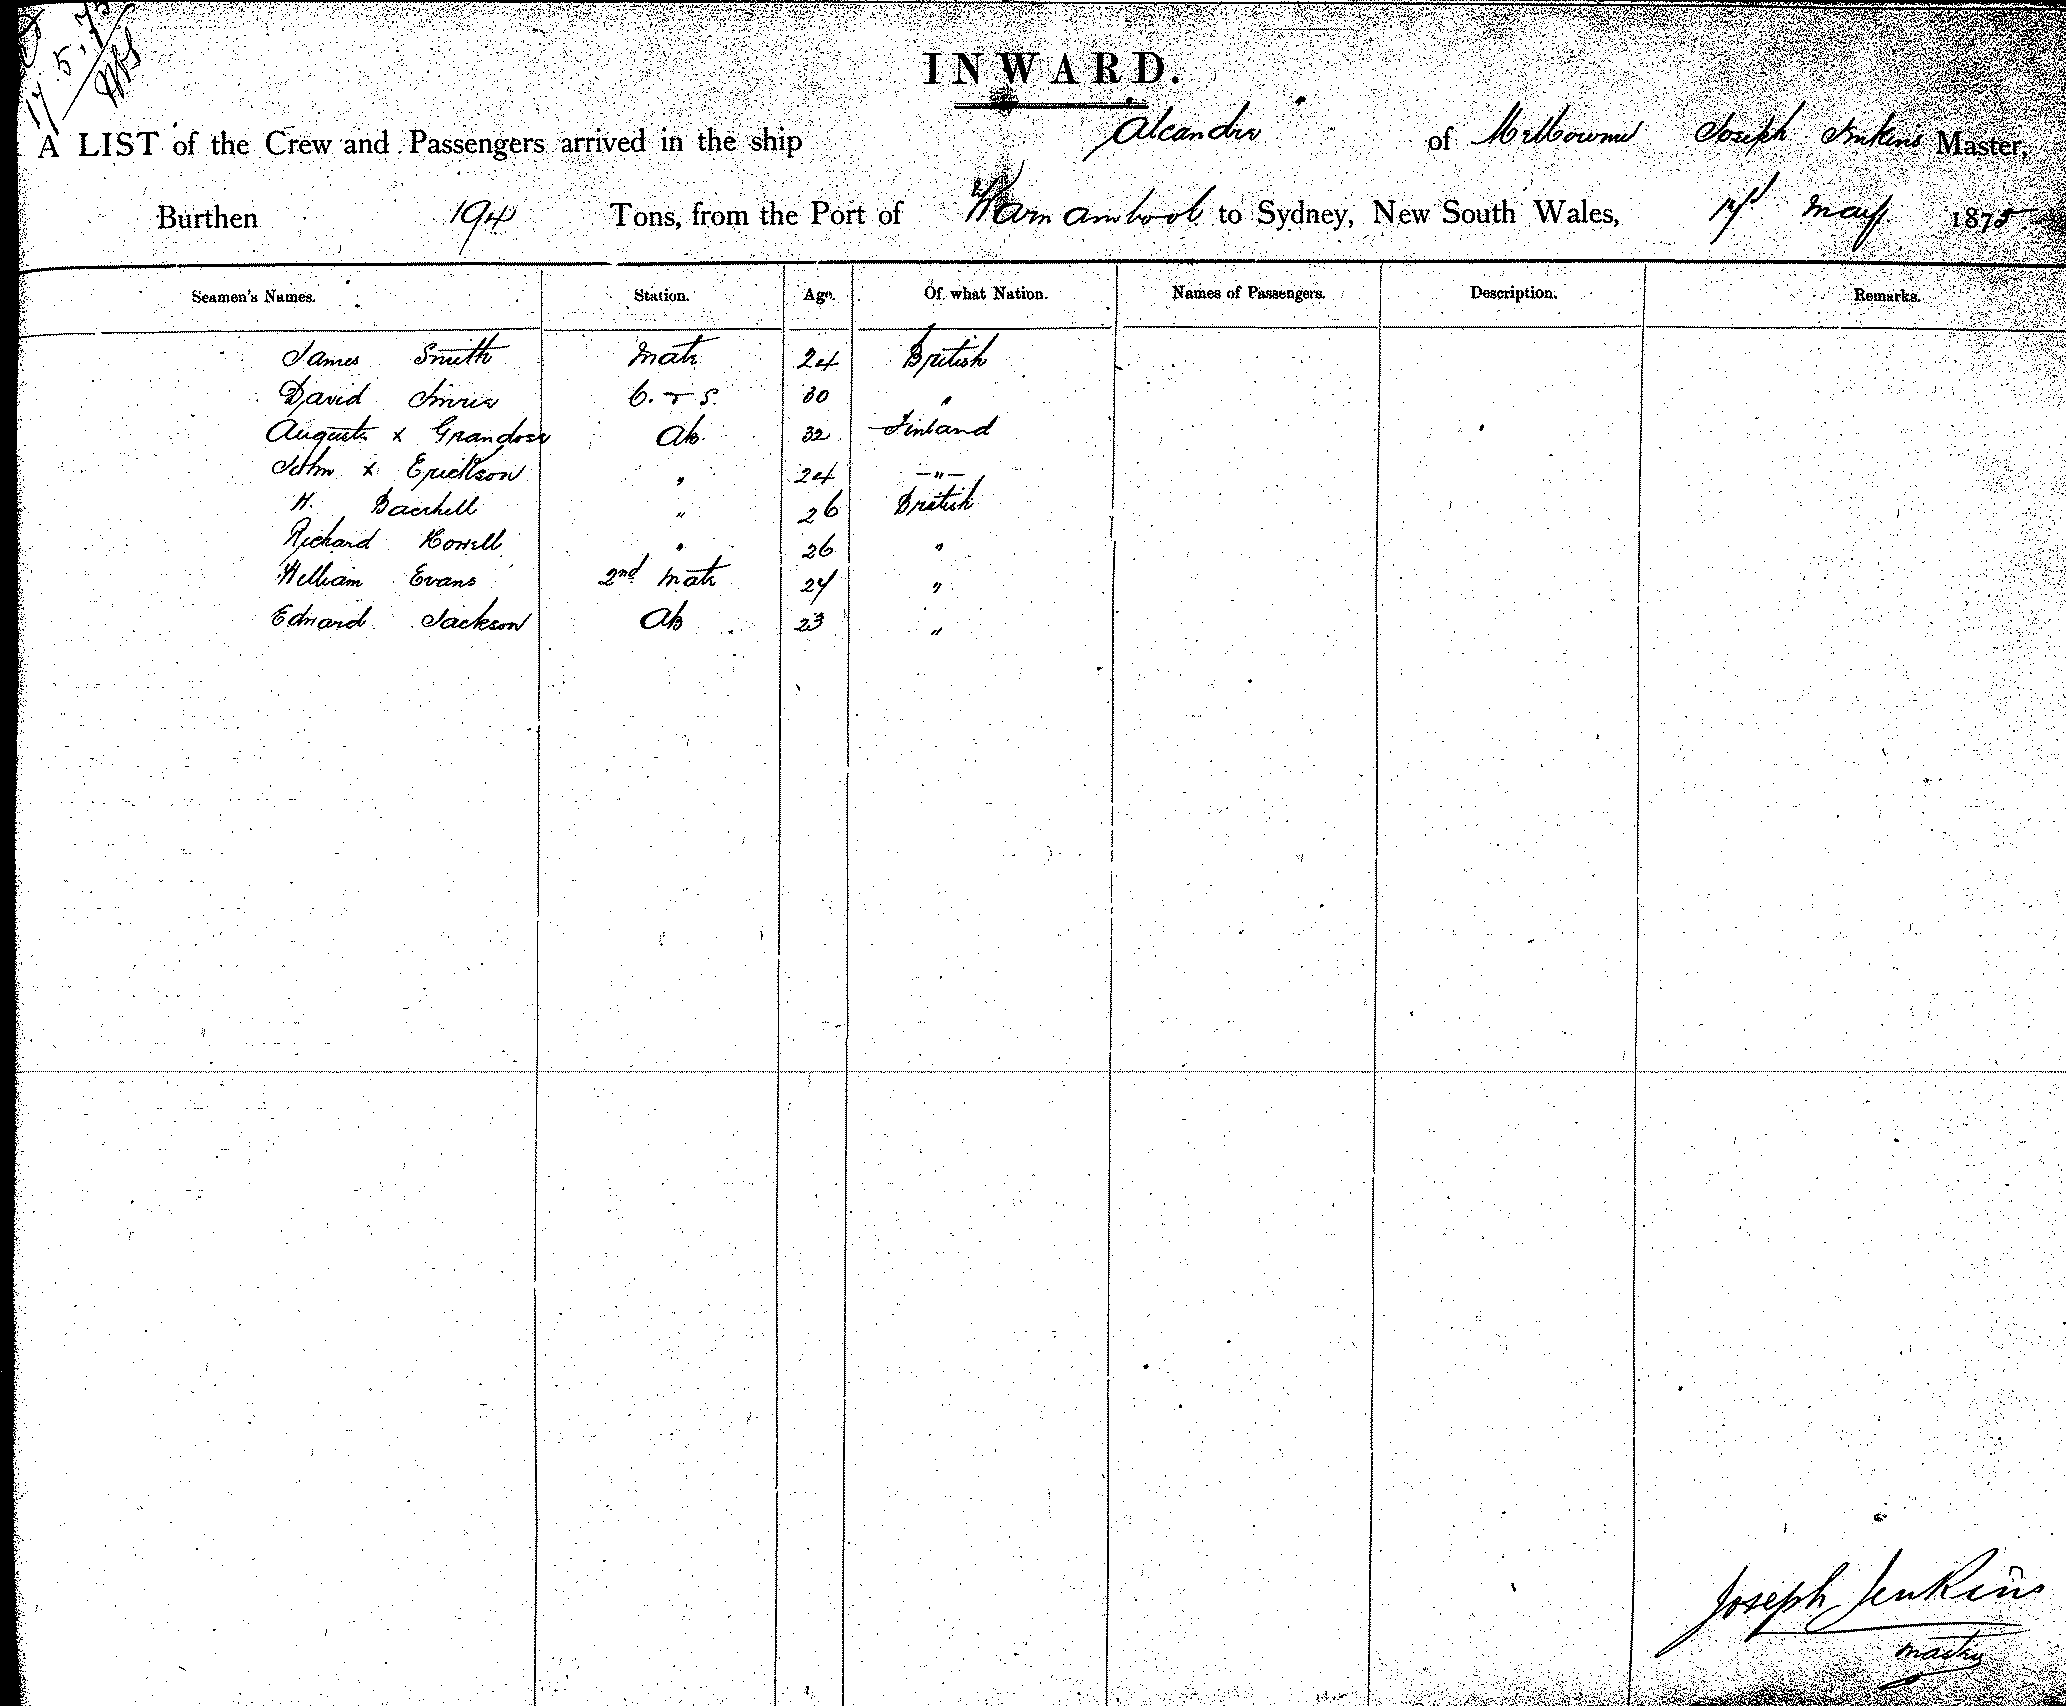 17/5/75
INWARD.
A LIST of the Crew and Passengers arrived in the ship Alcandre of Melbourne Joseph Jenkins Master,
Burthen 194 Tons, from the Port of Warnambool to Sydney, New South Wales, 17th May 1875
Seamen's Names. Station. Age. Of what Nation. Names of Passengers. Description. Remarks.
James Smith Mate 24 British
David C. & S. 30 "
August x Ab 32 Finland
John x Erickson " 24 -"-
H. " 26 British
Richard Howell " 26 "
William Evans 2nd Mate 24 "
Edward Jackson Ab 23 "
Joseph Jenkins
master